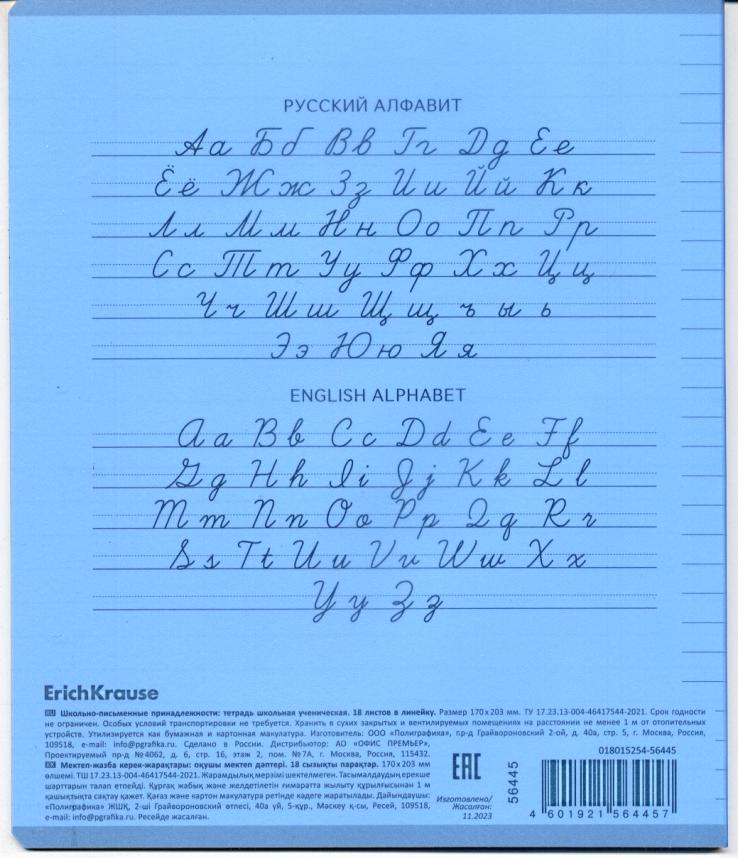 РУССКИЙ АЛФАВИТ
Аа Бб Вв Гг Дд Ее
Ёё Жж Зз Ии Йй Кк
Лл Мм Нн Оо Пп Рр
Сс Тт Уу Фф Хх Цц
Чч Шш Щщ ъ ы ь
Ээ Юю Яя
ENGLISH ALPHABET
Aa Bb Cc Dd Ee Ff
Gg Hh Ii Jj Kk Ll
Mm Nn Oo Pp Qq Rr
Ss Tt Uu Vv Ww Xx
Yy Zz
ErichKrause
RU Школьно-письменные принадлежности: тетрадь школьная ученическая. 18 листов в линейку. Размер 170x203 мм. ТУ 17.23.13-004-46417544-2021. Срок годности
не ограничен. Особых условий транспортировки не требуется. Хранить в сухих закрытых и вентилируемых помещениях на расстоянии не менее 1 м от отопительных
устройств. Утилизируется как бумажная и картонная макулатура. Изготовитель: ООО «Полиграфика», пр-д Грайвороновский 2-ой, д. 40а, стр. 5, г. Москва, Россия,
109518, e-mail: info@pgrafika.ru. Сделано в России. Дистрибьютор: АО «ОФИС ПРЕМЬЕР»,
Проектируемый пр-д №4062, д. 6, стр. 16, этаж 2, пом. №7А, г. Москва, Россия, 115432.
KZ Мектеп-жазба керек-жарақтары: оқушы мектеп дәптері. 18 сызықты парақтар. 170x203 мм
өлшемі. ТШ 17.23.13-004-46417544-2021. Жарамдылық мерзімі шектелмеген. Тасымалдаудың ерекше
шарттарын талап етпейді. Құрғақ жабық және желдетілетін ғимаратта жылыту құрылғысынан 1 м
қашықтықта сақтау қажет. Қағаз және картон макулатура ретінде кәдеге жаратылады. Дайындаушы:
«Полиграфика» ЖШҚ, 2-ші Грайвороновский өтпесі, 40а үй, 5-құр., Мәскеу қ-сы, Ресей, 109518,
e-mail: info@pgrafika.ru. Ресейде жасалған.
EAC
Изготовлено/
Жасалған:
11.2023
56445
018015254-56445
4 601921 564457